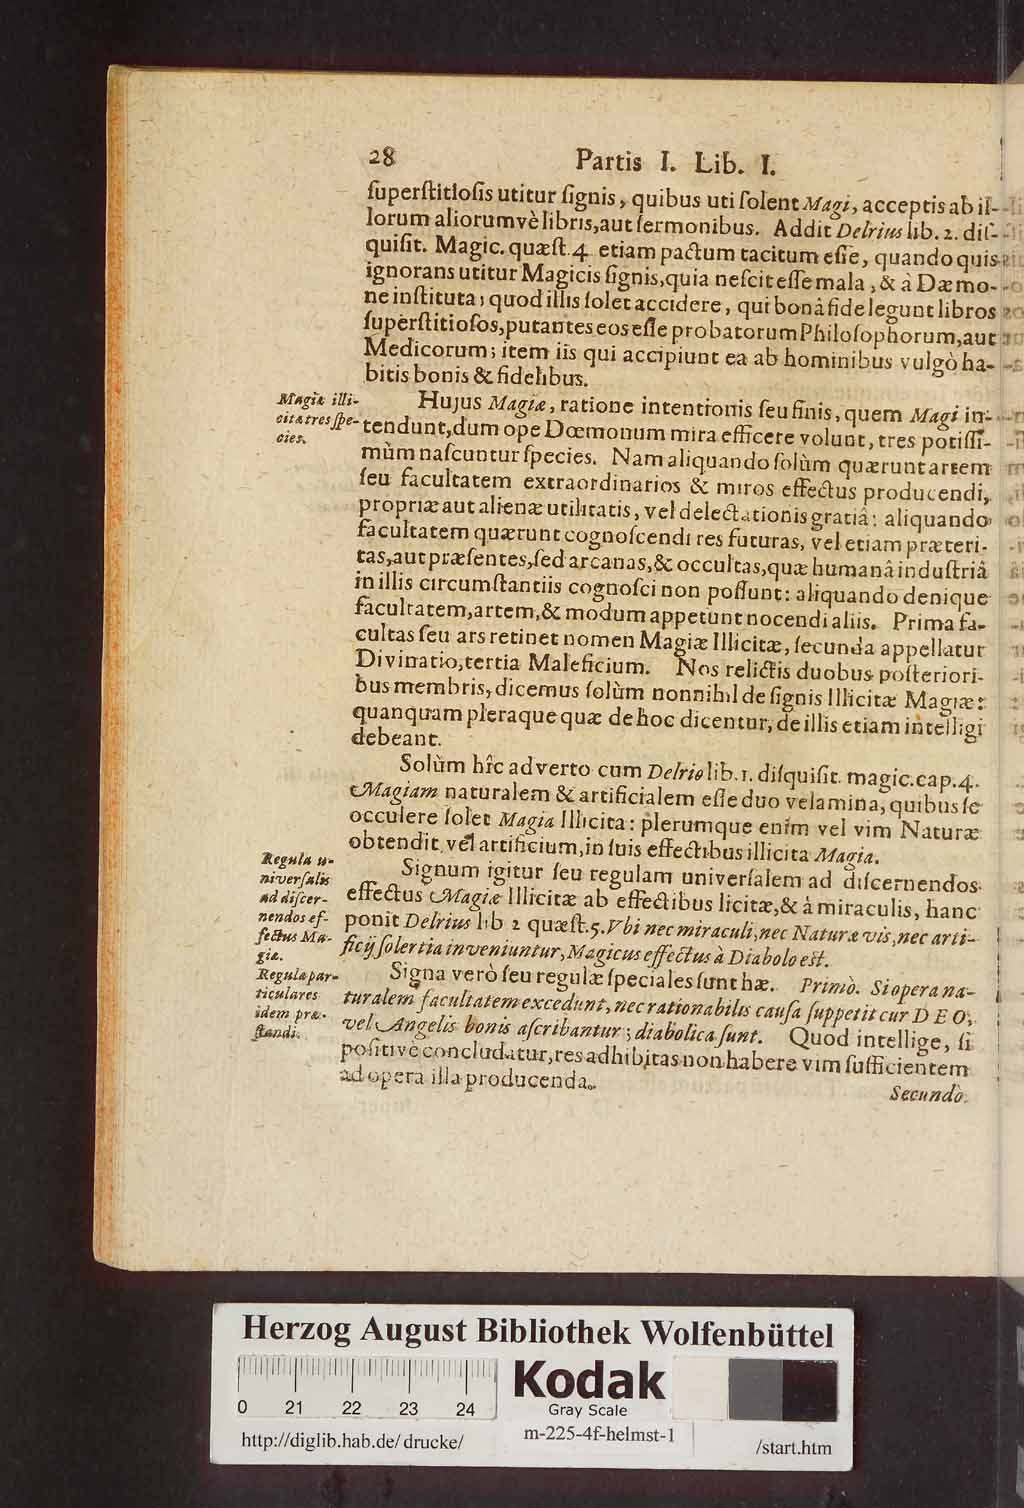 28 Partis I. Lib. I.
ſuperſtitioſis utitur ſignis, quibus uti ſolent Magi, acceptis ab il-
lorum aliorumvè libris, aut ſermonibus. Addit Delrius lib. 2. diſ-
quiſit. Magic. quæſt. 4. etiam pactum tacitum eſſe, quando quis
ignorans utitur Magicis ſignis, quia neſcit eſſe mala, & à Dæmo-
ne inſtituta; quod illis ſolet accidere, qui bonâ fide legunt libros
ſuperſtitioſos, putantes eos eſſe probatorum Philoſophorum, aut
Medicorum; item iis qui accipiunt ea ab hominibus vulgò ha-
bitis bonis & fidelibus.
Magiæ illi-
citæ tres ſpe-
cies.
Hujus Magiæ, ratione intentionis ſeu finis, quem Magi in-
tendunt, dum ope Dœmonum mira efficere volunt, tres potiſſi-
mùm naſcuntur ſpecies. Nam aliquando ſolùm quærunt artem
ſeu facultatem extraordinarios & miros effectus producendi,
propriæ aut alienæ utilitatis, vel delectationis gratiâ: aliquando
facultatem quærunt cognoſcendi res futuras, vel etiam præteri-
tas, aut præſentes, ſed arcanas, & occultas, quæ humanâ induſtriâ
in illis circumſtantiis cognoſci non poſſunt: aliquando denique
facultatem, artem, & modum appetunt nocendi aliis. Prima fa-
cultas ſeu ars retinet nomen Magiæ Illicitæ, ſecunda appellatur
Divinatio, tertia Maleficium. Nos relictis duobus poſteriori-
bus membris, dicemus ſolùm nonnihil de ſignis Illicitæ Magiæ:
quanquam pleraque quæ de hoc dicentur, de illis etiam intelligi
debeant.
Solùm hîc adverto cum Delrio lib. 1. diſquiſit. magic. cap. 4.
Magiam naturalem & artificialem eſſe duo velamina, quibus ſe
occulere ſolet Magia Illicita: plerumque enim vel vim Naturæ
obtendit, vel artificium, in ſuis effectibus illicita Magia.
Regula u-
niverſalis
ad diſcer-
nendos ef-
fectus Ma-
giæ.
Signum igitur ſeu regulam univerſalem ad diſcernendos
effectus Magiæ Illicitæ ab effectibus licitæ, & à miraculis, hanc
ponit Delrius lib 2 quæſt. 5. Vbi nec miraculi, nec Naturæ vis, nec arti-
ficij ſolertia inveniuntur, Magicus effectus à Diabolo eſt.
Regulæ par-
ticulares
idem præ-
ſtandi.
Signa verò ſeu regulæ ſpeciales ſunt hæ. Primò. Si opera na-
turalem facultatem excedunt, nec rationabilis cauſa ſuppetit cur DEO,
vel Angelis bonis aſcribantur; diabolica ſunt. Quod intellige, ſi
poſitivè concludatur, res adhibitas non habere vim ſufficientem
ad opera illa producenda.
Secundò.
Herzog August Bibliothek Wolfenbüttel
Kodak
Gray Scale
0 21 22 23 24
http://diglib.hab.de/drucke/
m-225-4f-helmst-1
/start.htm